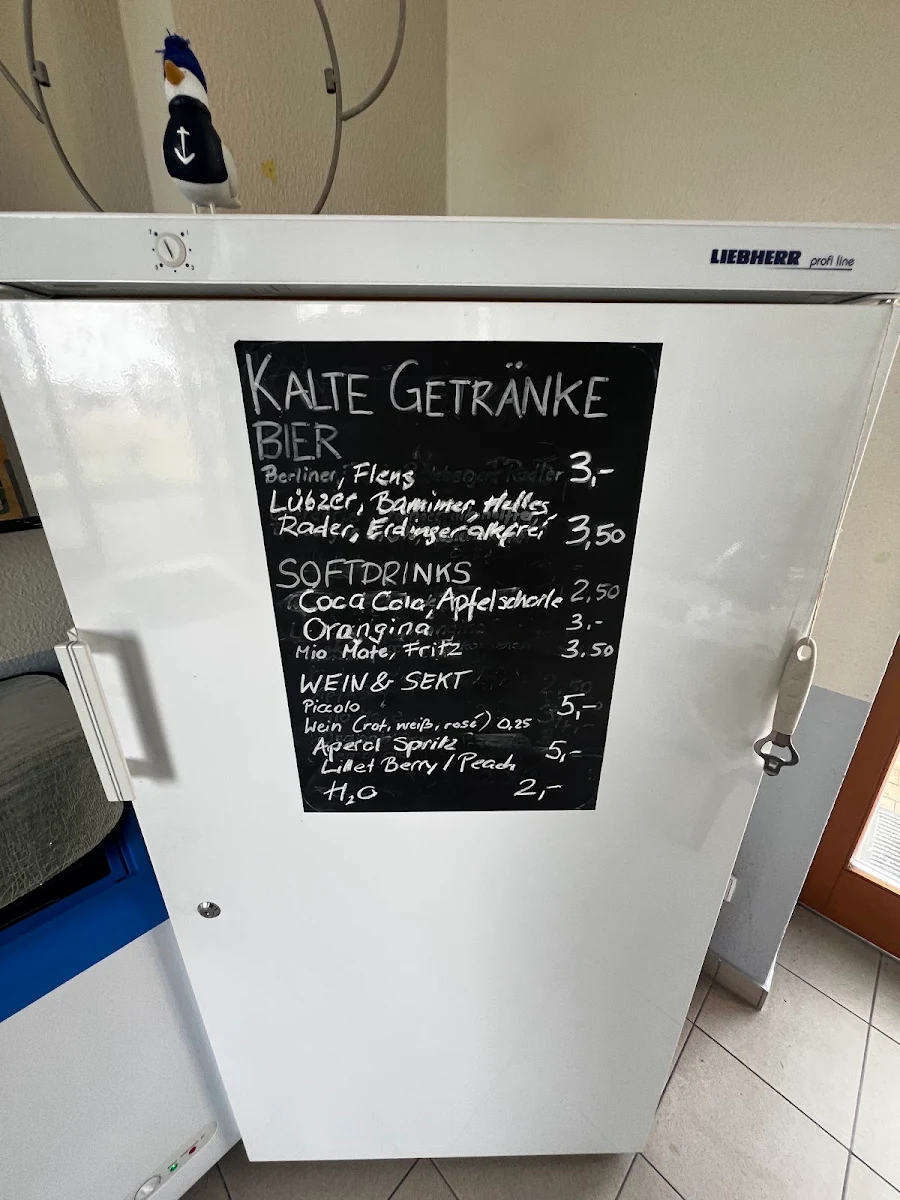 LIEBHERR profi line
KALTE GETRÄNKE
BIER
Berliner, Flens 3,-
Lübzer, Barnimer, Helles,
Rader, Erdinger alkfrei 3,50
SOFTDRINKS
Coca Cola, Apfelschorle 2,50
Orangina 3.-
Mio Mate, Fritz 3.50
WEIN & SEKT
Piccolo 5,-
Wein (rot, weiß, rosé) 0,25
Aperol Spritz 5,-
Lillet Berry / Peach
H₂O 2,-